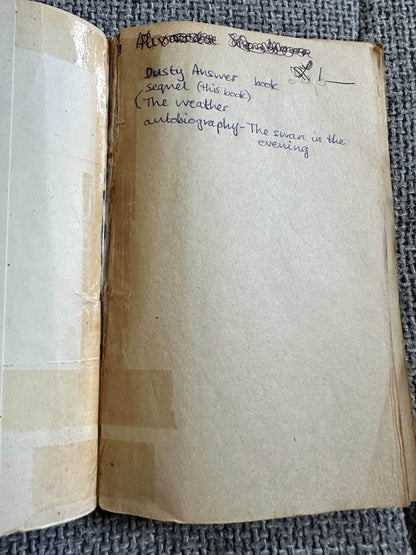 Dusty Answer book
sequel (this book)
(The weather
autobiography - The swan in the
evening